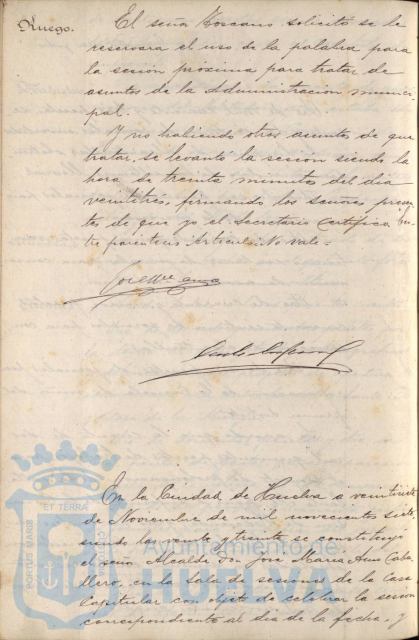 Ruego.
El señor Toscano solicitó se le
reservara el uso de la palabra para
la sesión próxima para tratar de
asuntos de la Administración munici
pal.
Y no habiendo otros asuntos de que
tratar, se levantó la sesión siendo la
hora de treinta minutos del día
veintitrés, firmando los señores presen
tes de que yo el Secretario Certifico. En
tre parentesis: Articulo: No vale=
En la Ciudad de Huelva a veintisiete
de Noviembre de mil novecientos siete
siendo las veinte y treinta se constituyó
el señor Alcalde D. José María Amo Caba
llero, en la sala de sesiones de la Casa
Capitular con objeto de celebrar la sesión
correspondiente al día de la fecha. Y
PORTUS MARIS
ET TERRÆ
Ayuntamiento de
HUELVA